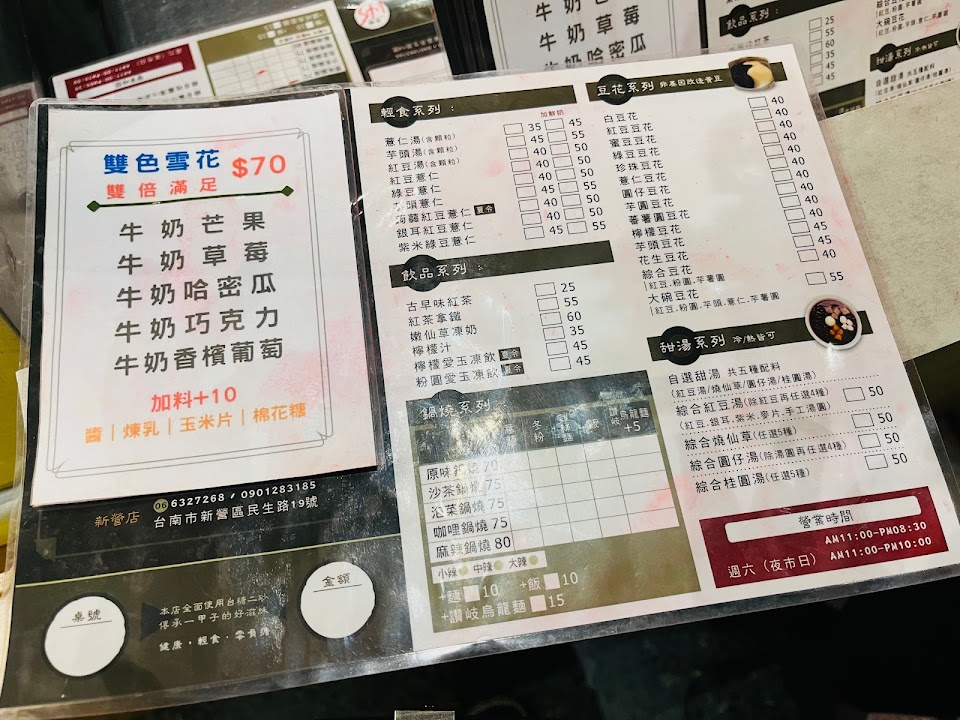 牛奶草莓
牛奶哈密瓜
飲品系列
甜湯系列 冷/熱皆可
雙色雪花 $70
雙倍滿足
牛奶芒果
牛奶草莓
牛奶哈密瓜
牛奶巧克力
牛奶香檳葡萄
加料+10
醬|煉乳|玉米片|棉花糖
新營店
06 6327268 / 0901283185
台南市新營區民生路19號
桌號
本店全面使用台糖二砂
得承一甲子的好滋味
健康·輕食·零負擔
金額
輕食系列:
加鮮奶
薏仁湯(含顆粒) 35 45
芋頭湯(含顆粒) 45 55
紅豆湯(含顆粒) 40 50
紅豆薏仁 40 50
綠豆薏仁 40 50
芋頭薏仁 45 55
蒟蒻紅豆薏仁 夏令 40 50
銀耳紅豆薏仁 40 50
紫米綠豆薏仁 45 55
飲品系列:
古早味紅茶 25
紅茶拿鐵 55
嫩仙草凍奶 60
檸檬汁 35
檸檬愛玉凍飲 夏令 45
粉圓愛玉凍飲 夏令 45
鍋燒系列
冬粉
烏龍麵
+5
原味鍋燒 70
沙茶鍋燒 75
泡菜鍋燒 75
咖哩鍋燒 75
麻辣鍋燒 80
小辣 中辣 大辣
+麵 10 +飯 10
+讚岐烏龍麵 15
豆花系列 非基因改造黃豆
白豆花 40
紅豆豆花 40
蜜豆豆花
綠豆豆花
珍珠豆花
薏仁豆花
圓仔豆花
芋圓豆花
蕃薯圓豆花
檸檬豆花
芋頭豆花
花生豆花
綜合豆花
|紅豆.粉圓.芋薯圓
大碗豆花 55
|紅豆.粉圓.芋頭.薏仁.芋薯圓
甜湯系列 冷/熱皆可
自選甜湯 共五種配料
(紅豆湯/燒仙草/圓仔湯/桂圓湯)
綜合紅豆湯(除紅豆再任選4種) 50
(紅豆.銀耳.紫米.麥片.手工湯圓)
綜合燒仙草(任選5種) 50
綜合圓仔湯(除湯圓再任選4種) 50
綜合桂圓湯(任選5種) 50
營業時間
AM11:00-PM08:30
週六(夜市日) AM11:00-PM10:00